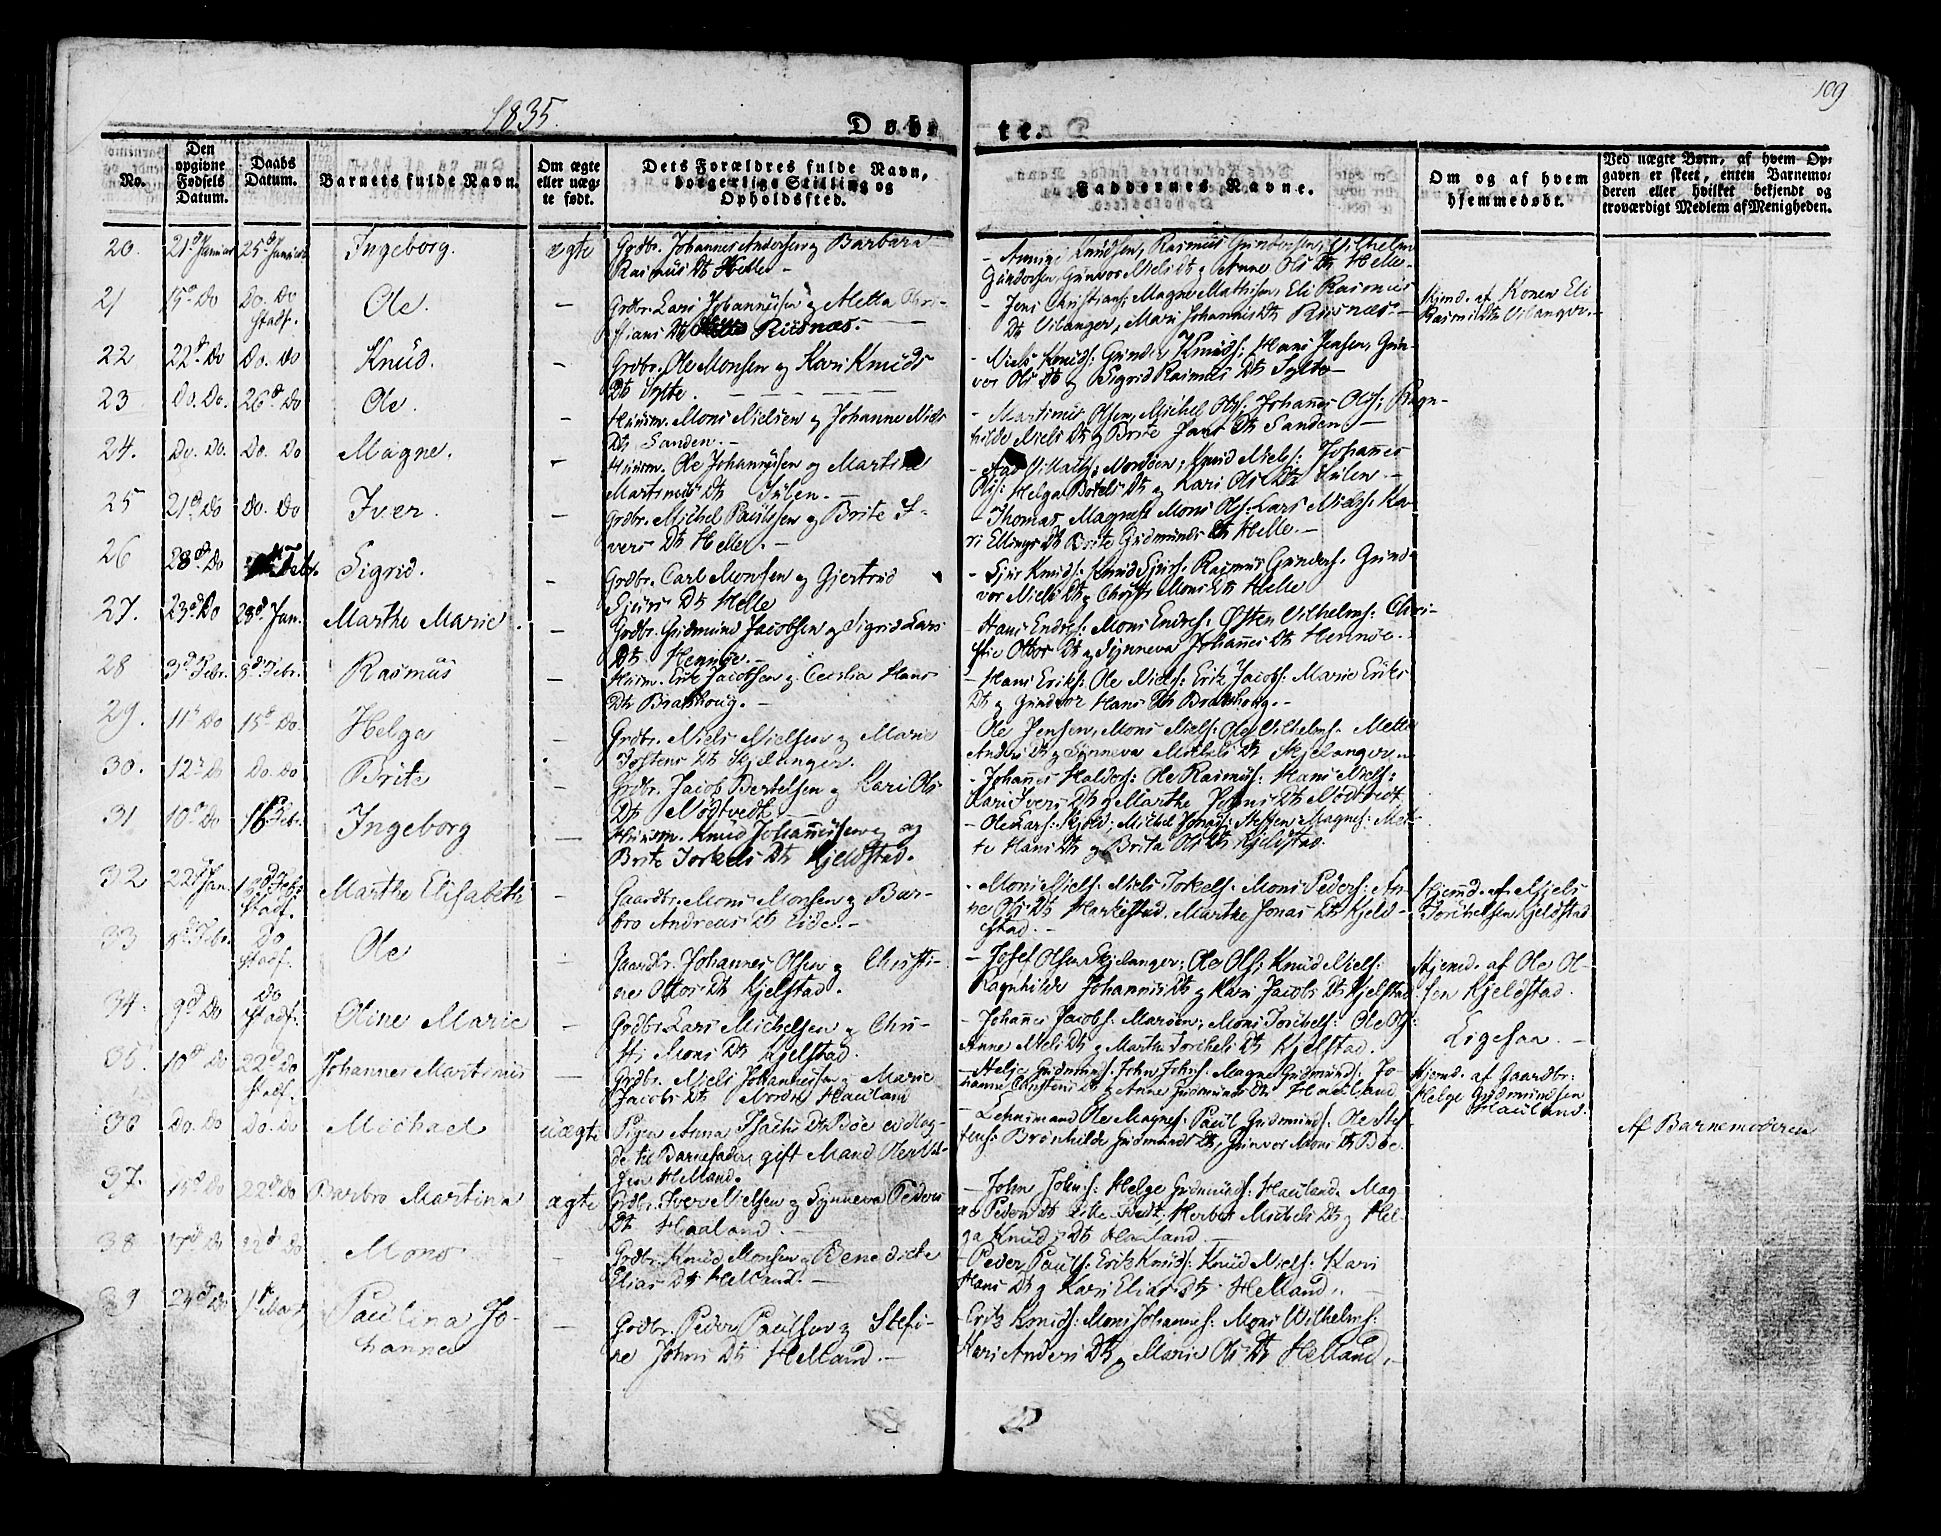 109
1835.
Døbte.
No.
Den opgivne Fødsels Datum.
Daabs Datum.
Barnets fulde Navn.
Om ægte eller uægte født.
Dets Forældres fulde Navn, borgerlige Stilling og Opholdssted.
Faddernes Navne.
Om og af hvem hjemmedøbt.
Ved uægte Børn, af hvem Opgaven er skeet, enten Barnemoderen eller hvilket bekjendt og troværdigt Medlem af Menigheden.
20. 21d Januar 25d Januar Ingeborg. ægte Grdbr. Johannes Andersen og Barbara
Rasmus Dtr Helle –
Knudsen, Rasmus Gundersen, Vilhelm
Gundersen, Gunvor Niels Dtr og Anne Ols Dtr Helle.
21 19d Do Do. Do Stadf. Ole. – Grdbr. Lars Johannesen og Metta Chri-
stians Dtr Riisnæs. –
– Jens Christians: Magne Mathisen, Eli Rasmus
Dtr Vilanger, Mari Johannes Dtr Riisnæs –
Hjemd. af Konen Eli
Rasmus Dtr Vilanger. –
22 22d Do Do. Do Knud. – Grdbr. Ole Monsen og Kari Knuds
Dtr Sylte.
– Niels Knuds: Gunder Knuds: Hans Jensen, Gun-
vor Ols Dtr og Sigrid Rasmus Dtr Sylte –
23 Do. Do. 26d Do Ole. – Huusm. Mons Nielsen og Johanne Niels
Dtr Sanden. –
– Martinus Olsen, Michel Ols: Johannes Ols: Ragn-
hilde Niels Dtr og Brite Jans Dtr Sanden –
24. Do. Do. Do. Do Magne. – Huusm. Ole Johannesen og Martine
Martinus Dtr Sulen. –
Knud Niels: Johannes
Ols: Helga Botels Dtr og Kari Ols Dtr Sulen –
25 21d Do Do. Do Iver. – Grdbr. Michel Paulsen og Brite I-
vers Dtr Helle. –
– Thomas Magnes: Mons Ols: Lars Niels: Ka-
ri Ellings Dtr Brite Gudmunds Dtr Helle. –
26 28d Do Febr. Sigrid. – Grdbr. Carl Monsen og Gjertrud
Sjurs Dtr Helle
– Sjur Knuds: Knud Sjurs: Rasmus Gunders: Gun-
vor Niels Dtr og Christi Mons Dtr Helle
27. 23d Do 28d Jan. Marthe Marie. – Grdbr. Gudmund Jacobsen og Sigrid Lars
Dtr Hennøe. –
– Hans Endres: Mons Endres: Østen Vilhelms: Chri-
stie Ottos Dtr og Synneva Johannes Dtr Hennøe. –
28 3d Febr. 8d Febr. Rasmus – Huusm. Erik Jacobsen og Cecilia Hans
Dtr Brathoug. –
– Hans Eriks: Ole Niels: Erik Jacobs: Marie Eriks
Dtr og Gundvor Hans Dtr Brathoug. –
29. 11d Do 15d Do. Helga Grdbr. Niels Nielsen og Marie
Jostens Dtr Skjelanger.
– Ole Jensen, Mons Niels: Ole Vilhelms: Mette
Anders Dtr og Synneva Michels Dtr Skjelanger. –
30. 12d Do Do. Do Brite Grdbr. Jacob Bertelsen og Kari Ols
Dtr Nødtvedt –
– Johannes Halders: Ole Rasmus: Hans Niels:
Kari Ivers Dtr og Marthe Johns Dtr Nødtvedt.
31 10d Do 16 Febr. Ingeborg – Huusm. Knud Johannesen og
Brite Torkels Dtr Kjeldstad.
– Ole Lars: Skjold, Michel Jonas: Steffen Magnes: Met-
te Hans Dtr og Brita Ols Dtr Kjeldstad.
32 22d Jan. Febr. Stadf. Marthe Elisabeth – Gaardbr. Mons Monsen og Bar-
bro Andreas Dtr Eide. –
– Mons Niels: Niels Torkels: Mons Peders: An-
ne Ols Dtr Herkestad, Marthe Jonas Dtr Kjeld-
stad. –
Hjemd. af Niels
Torchelsen Kjeldstad
33 8d Febr. Do Stadf. Ole – Gaardbr. Johannes Olsen og Christi-
ne Ottos Dtr Kjelstad.
– Josef Olsen Skjelanger; Ole Ols: Knud Niels:
Ragnhilde Johannes Dtr og Kari Jacobs Dtr Kjelstad.
Hjemd. af Ole Ol-
sen Kjeldstad.
34. 9d Do Do Stadf. Oline Marie – Grdbr. Lars Michelsen og Chri-
sti Mons Dtr Kjelstad.
– Johannes Jacobs: Marøen; Mons Torchels: Ole Ols:
Anne Niels Dtr og Marthe Torchels Dtr Kjelstad.
Ligesaa. –
35. 10d Do 22d Do Stadf. Johannes Martinus – Grdbr. Niels Johannesen og Marie
Jacobs Dtr Nordre Hauland
– Helje Gudmunds: John Johns: Magne Gudmunds: Jo-
hanne Christens Dtr og Anne Gudmunds Dtr Hauland
Hjemd. af Gaardbr:
Helge Gudmundsen
Hauland.
36 Do. Do. Do. Do Michael uægte Pigen Anna Isachs Dtr Bøe eidlag-
de til Barnefader gift Mand Ole
Helland.
– Lehnsmand Ole Magnes: Paul Gudmunds: Ole Stef-
fens: Brønhilde Gudmunds Dtr, Gunvor Mons Dtr Bøe.
Af Barnemoderen
37. 15d Do 22d Do Barbro Martina ægte Grdbr. Iver Nielsen og Synneva Peders
Dtr Haaland. –
– John Johns: Helge Gudmunds: Hauland. Mag-
Peders Dtr Lille Herber Michels Dtr og Hel-
ga Knuds Dtr Hauland. –
38 17d Do 22d Do Mons – Grdbr. Knud Monsen og Benedicte
Elias Dtr Helland. –
– Peder Pauls: Erik Knuds: Knud Niels: Kari
Hans Dtr og Kari Elias Dtr Helland. –
39 24d Do 1 Marts Paulina Jo-
hanne
– Grdbr. Peder Paulsen og Stefi-
ne Johns Dtr Helland. –
– Erik Knuds: Mons Johannes: Mons Wilhelms:
Kari Anders Dtr og Marie Ols Dtr Helland. –